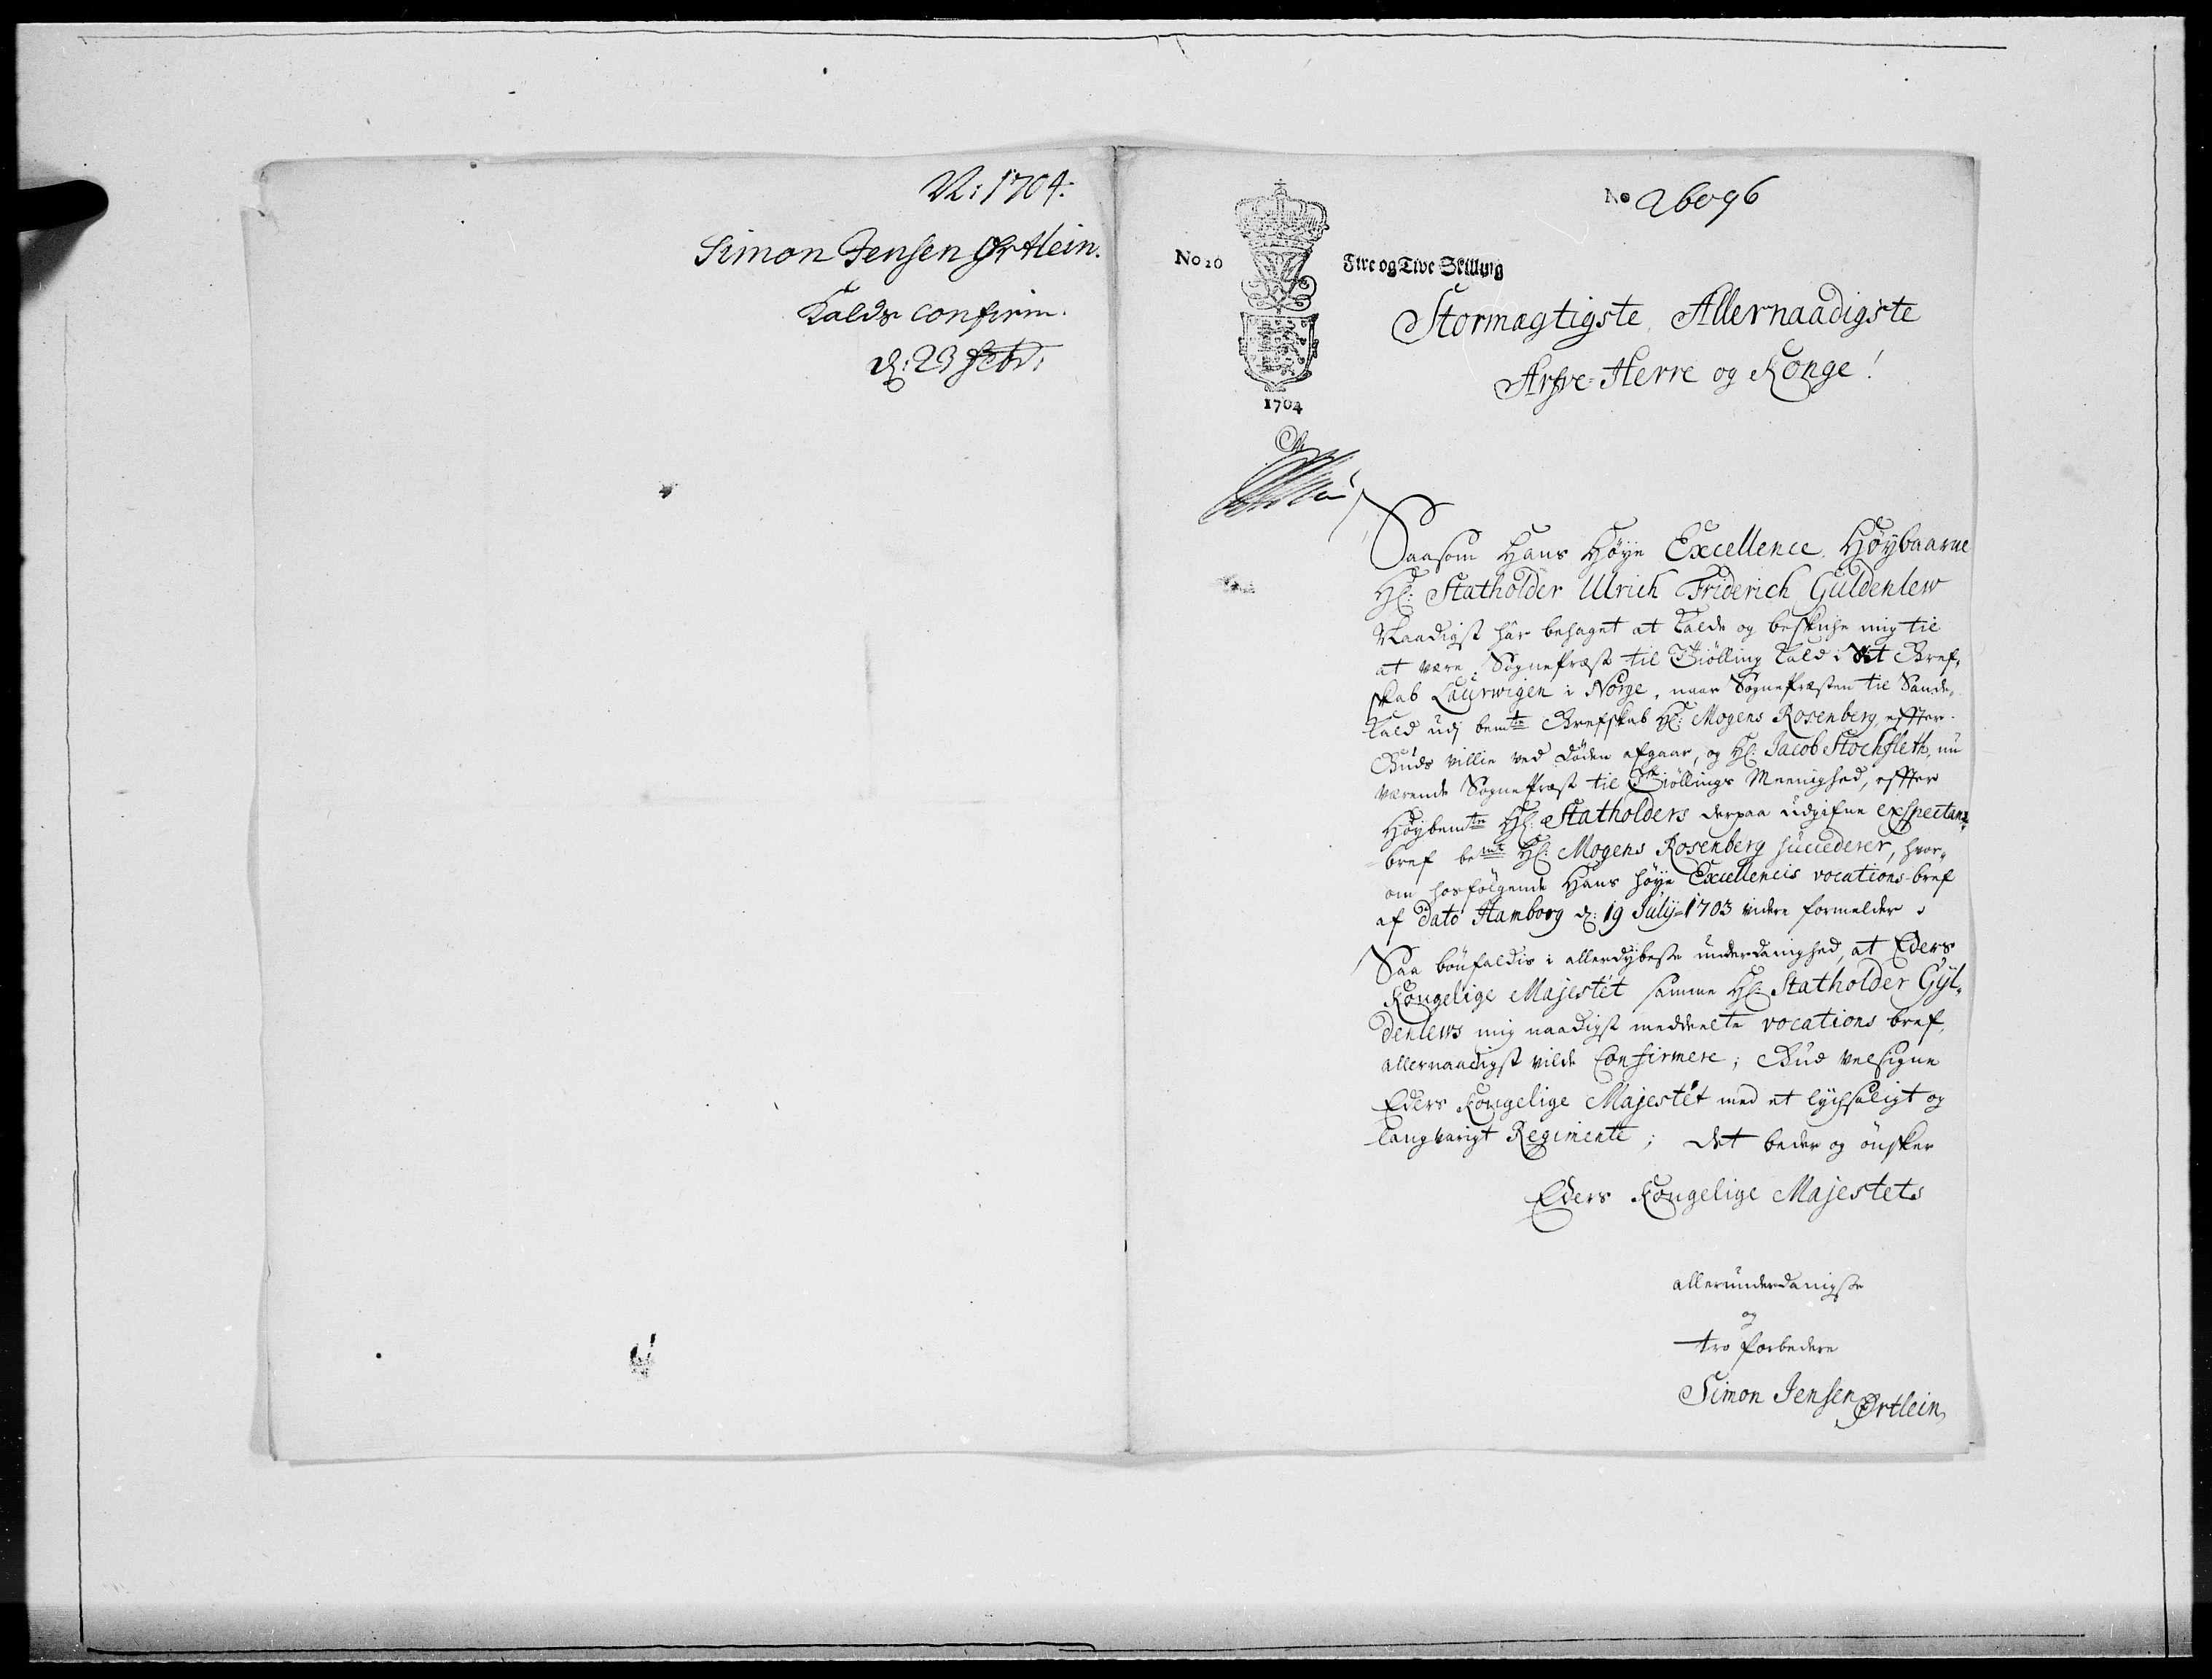 N: 1704:
Simon Jensen Ørtlein.
Kalds confirm.
d: 23 Febr:
No 26096
No 20
Fire og Tive Skilling
1704
Stormægtigste Allernaadigste
Arfve-Herre og Konge!
Saasom Hans Høye Excellence Høybaarne
Hr: Statholder Ulrich Friderich Güldenlew
Naadigst har behaget at kalde og beskiche mig til
at være Sognepræst til Thiølling Kald i det Gref-
skab Laurwigen i Norge, naar Sognepræsten til Sande-
Kald udj bemte Grefskab Hr: Mogens Rosenberg, effter
Guds villie ved døden afgaar, og Hr: Jacob Stochfleth, nu
værende Sognepræst til Thiøllings Meenighed, effter
Høybemte Hr: Statholders derpaa udgifne exspectanz-
bref bemte Hr: Mogens Rosenberg succederer, hvor-
om hosfølgende Hans høye Excellencis vocations-bref
af Dato Hamborg d: 19 July 1703 videre formelder
Saa bønfaldis i allerdybeste underdanighed, at Eders
Kongelige Majestet samme Hr: Statholder Gyl-
denlews mig naadigst meddeelte vocations bref,
allernaadigst vilde Confirmere; Gud velsigne
Eders Kongelige Majestet med et lychsaligt og
langvarigt Regimente; det beder og ønsker
Eders Kongelige Majestets
allerunderdanigste
og
tro forbedere
Simon Jensen Ørtlein